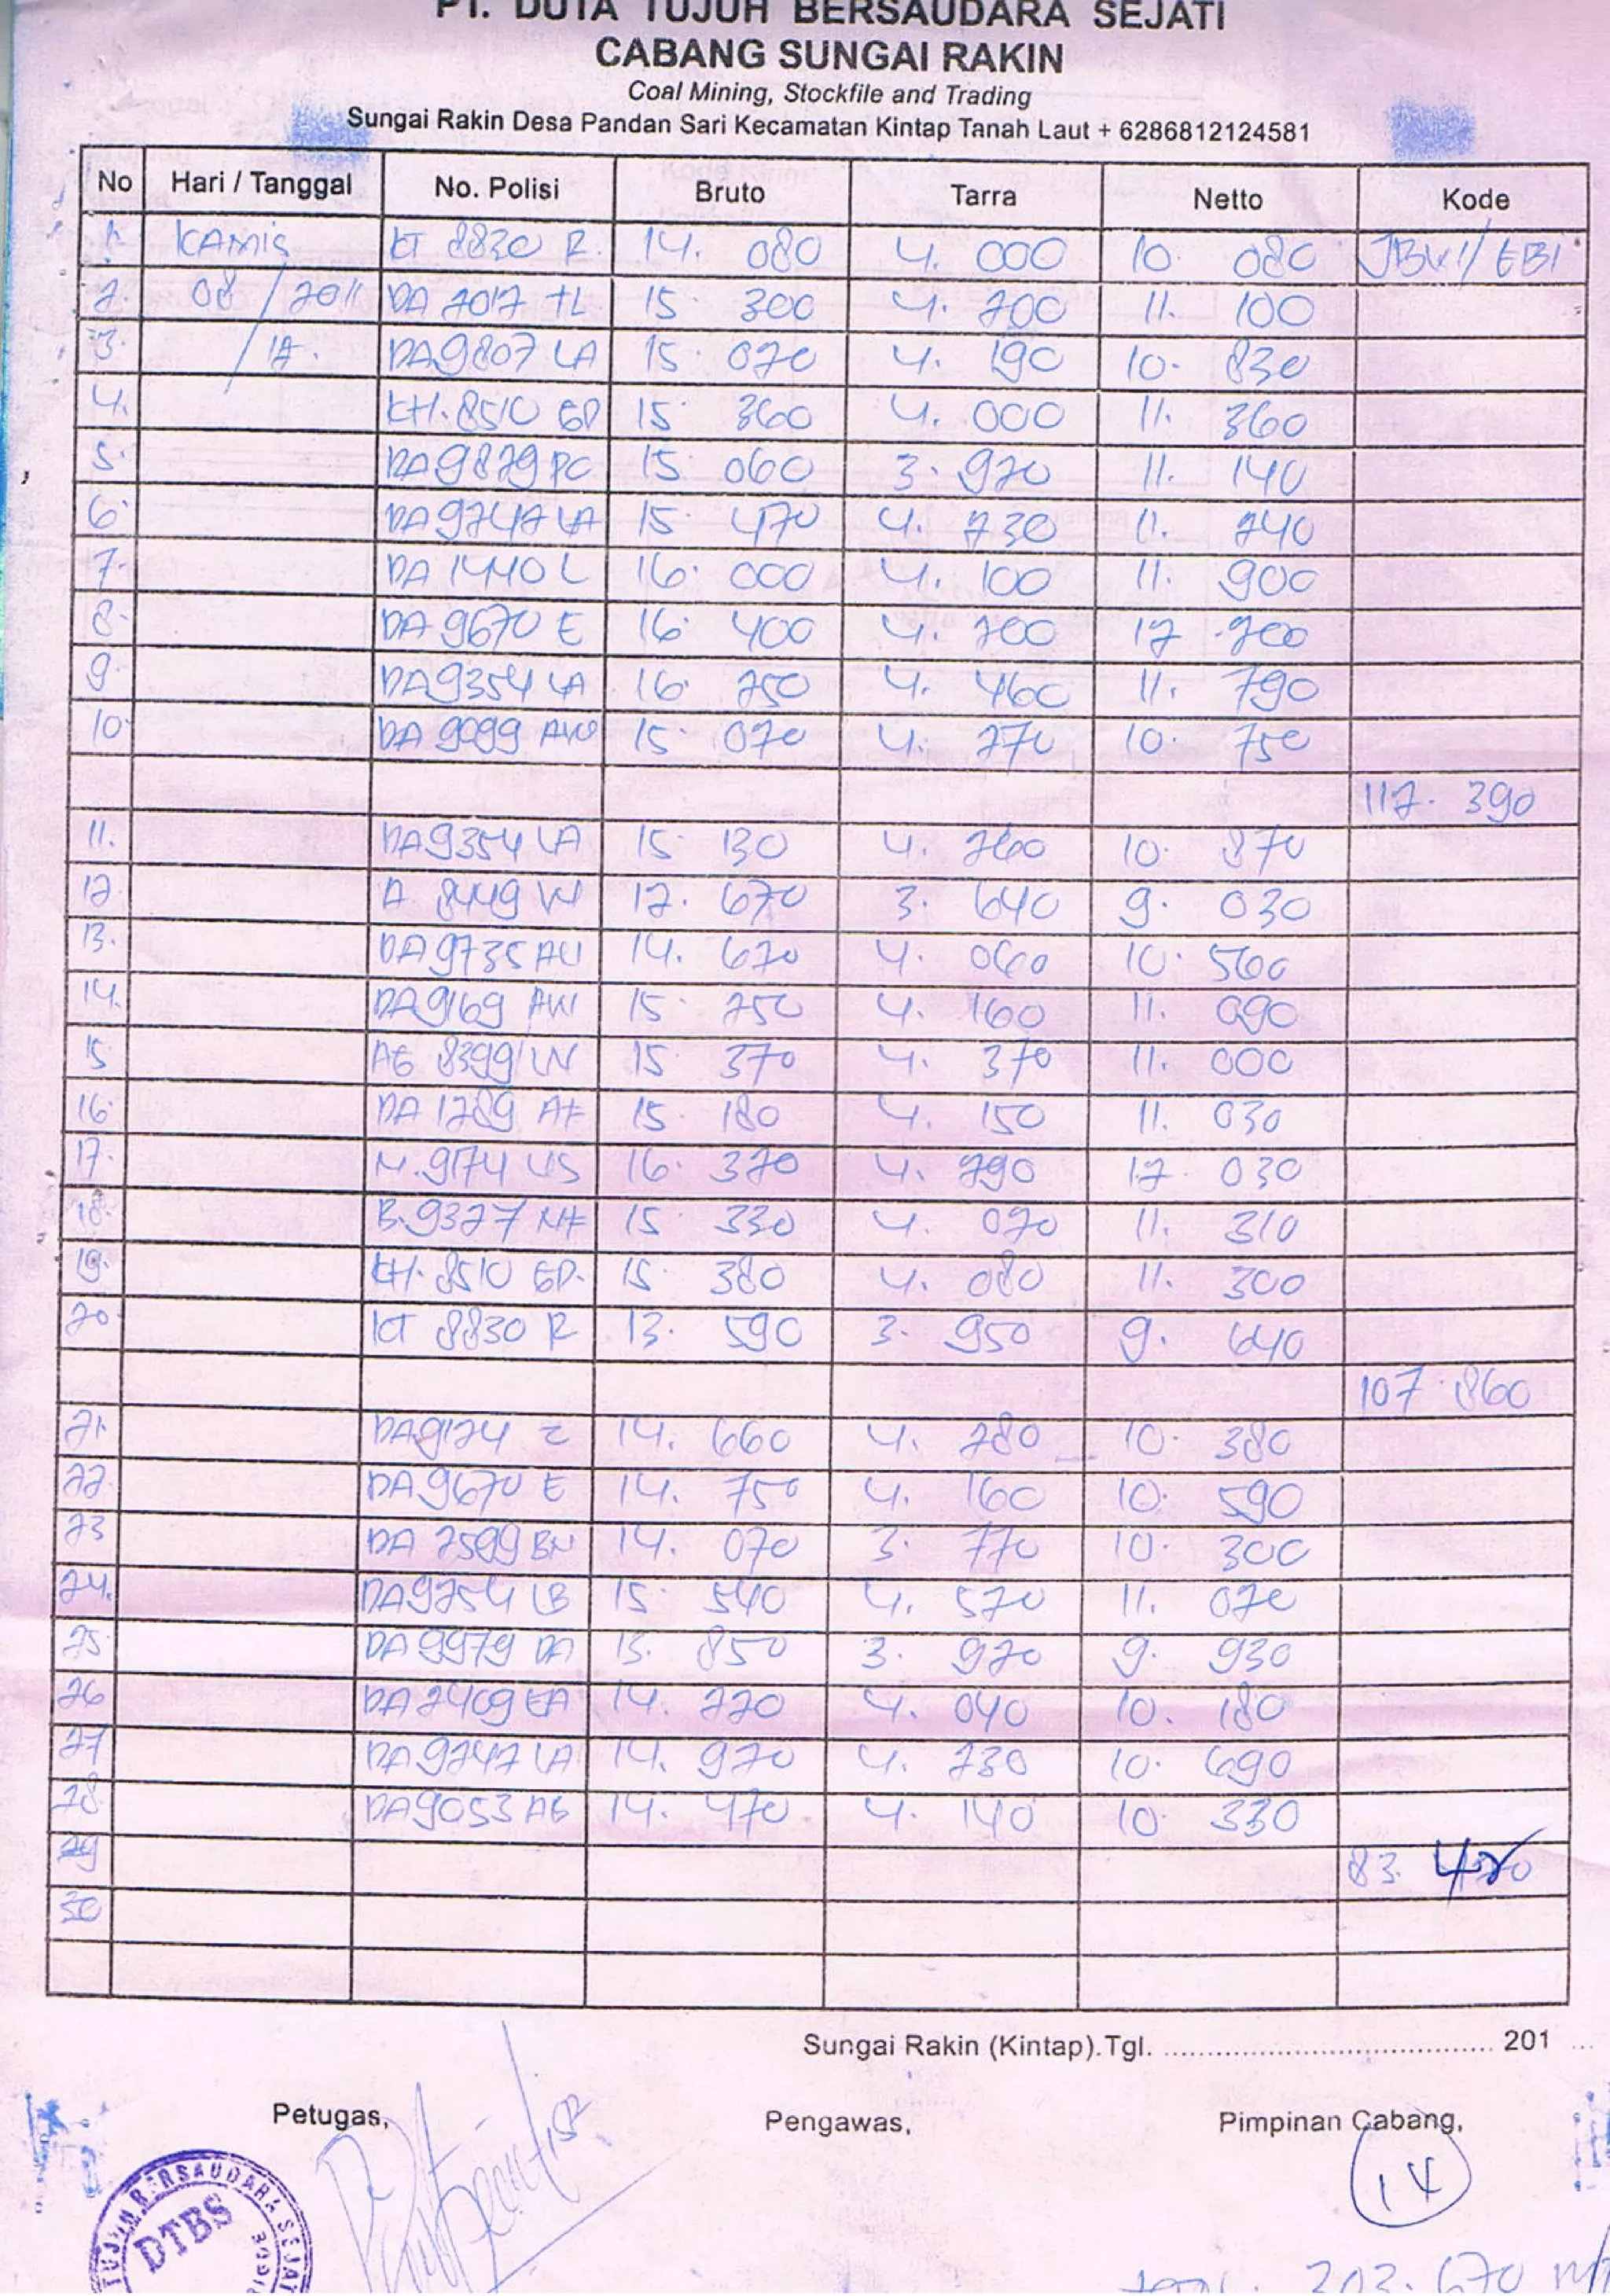 PT. DUTA TUJUH BERSAUDARA SEJATI
CABANG SUNGAI RAKIN
Coal Mining, Stockfile and Trading
Sungai Rakin Desa Pandan Sari Kecamatan Kintap Tanah Laut + 6286812124581
No Hari / Tanggal No. Polisi Bruto Tarra Netto Kode
1. KAMIS KT 8830 R. 14. 080 4. 000 10. 080 JBU1/EBI
2. 08 / 2011 DA 2017 TL 15 300 4. 200 11. 100
3. / 12. DA9807 LA 15. 020 4. 190 10. 830
4. KH. 8510 GP 15. 360 4. 000 11. 360
5. DA9829PC 15 060 3. 920 11. 140
6. DA9242 LA 15. 470 4. 230 11. 240
7. DA 1440 L 16. 000 4. 100 11. 900
8. DA 9670 E 16. 400 4. 200 12 .200
9. DA9354 LA 16. 250 4. 460 11. 790
10. DA 9099 AW 15. 020 4. 270 10. 750
112. 390
11. DA9354 LA 15. 130 4. 260 10. 870
12. A 8449 W 12. 670 3. 640 9. 030
13. DA9735 AU 14. 620 4. 060 10. 560
14. DA9169 AW 15. 250 4. 160 11. 090
15 AG 8399 W 15 370 4. 370 11. 000
16. DA 1289 AF 15. 180 4. 150 11. 030
17. N. 9174 US 16. 320 4. 290 12. 030
18. B. 9327 NF 15 330 4. 020 11. 310
19. KH. 8510 GP. 15. 380 4. 080 11. 300
20. KT 8830 R 13. 590 3. 950 9. 640
107.860
21. DA9124 Z 14. 660 4. 280 10. 380
22. DA9670 E 14. 750 4. 160 10. 590
23 DA 2599 BN 14. 070 3. 770 10. 300
24. DA9254 LB 15 540 4. 520 11. 020
25. DA 9979 DA 13. 850 3. 920 9. 930
26 DA 2409 EA 14. 220 4. 040 10. 180
27 DA9242 LA 14. 920 4. 230 10. 690
28. DA9053 AG 14. 470 4. 140 10 330
29 83. 420
30
Sungai Rakin (Kintap).Tgl. ........................................ 201 ...
Petugas, Pengawas, Pimpinan Cabang,
14
TUJUH BERSAUDARA SEJATI
DTBS
303.670